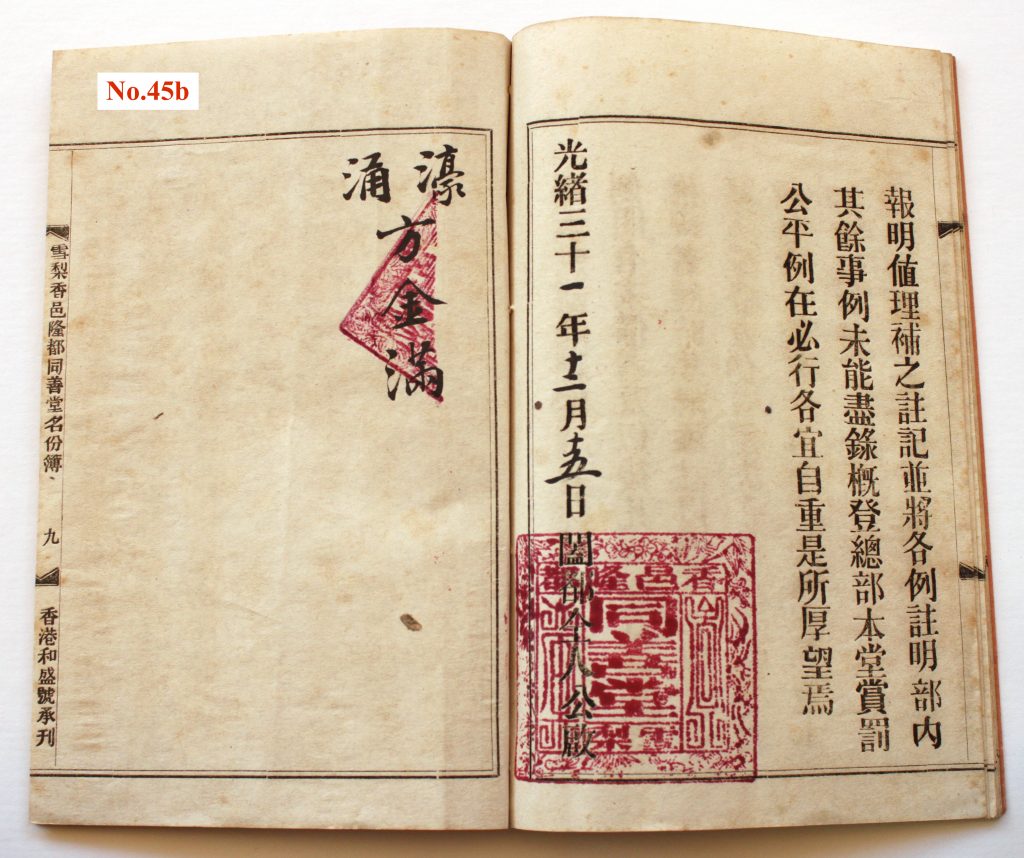 No.45b
報明值理補之註記並將各例註明部內
其餘事例未能盡錄概登總部本堂賞罰
公平例在必行各宜自重是所厚望焉
光緒三十一年十二月十五日闔都仝人公啟
香邑隆都
同善堂
雪梨
濠涌
方金滿
雪梨香邑隆都同善堂名份簿
九
香港和盛號承刊